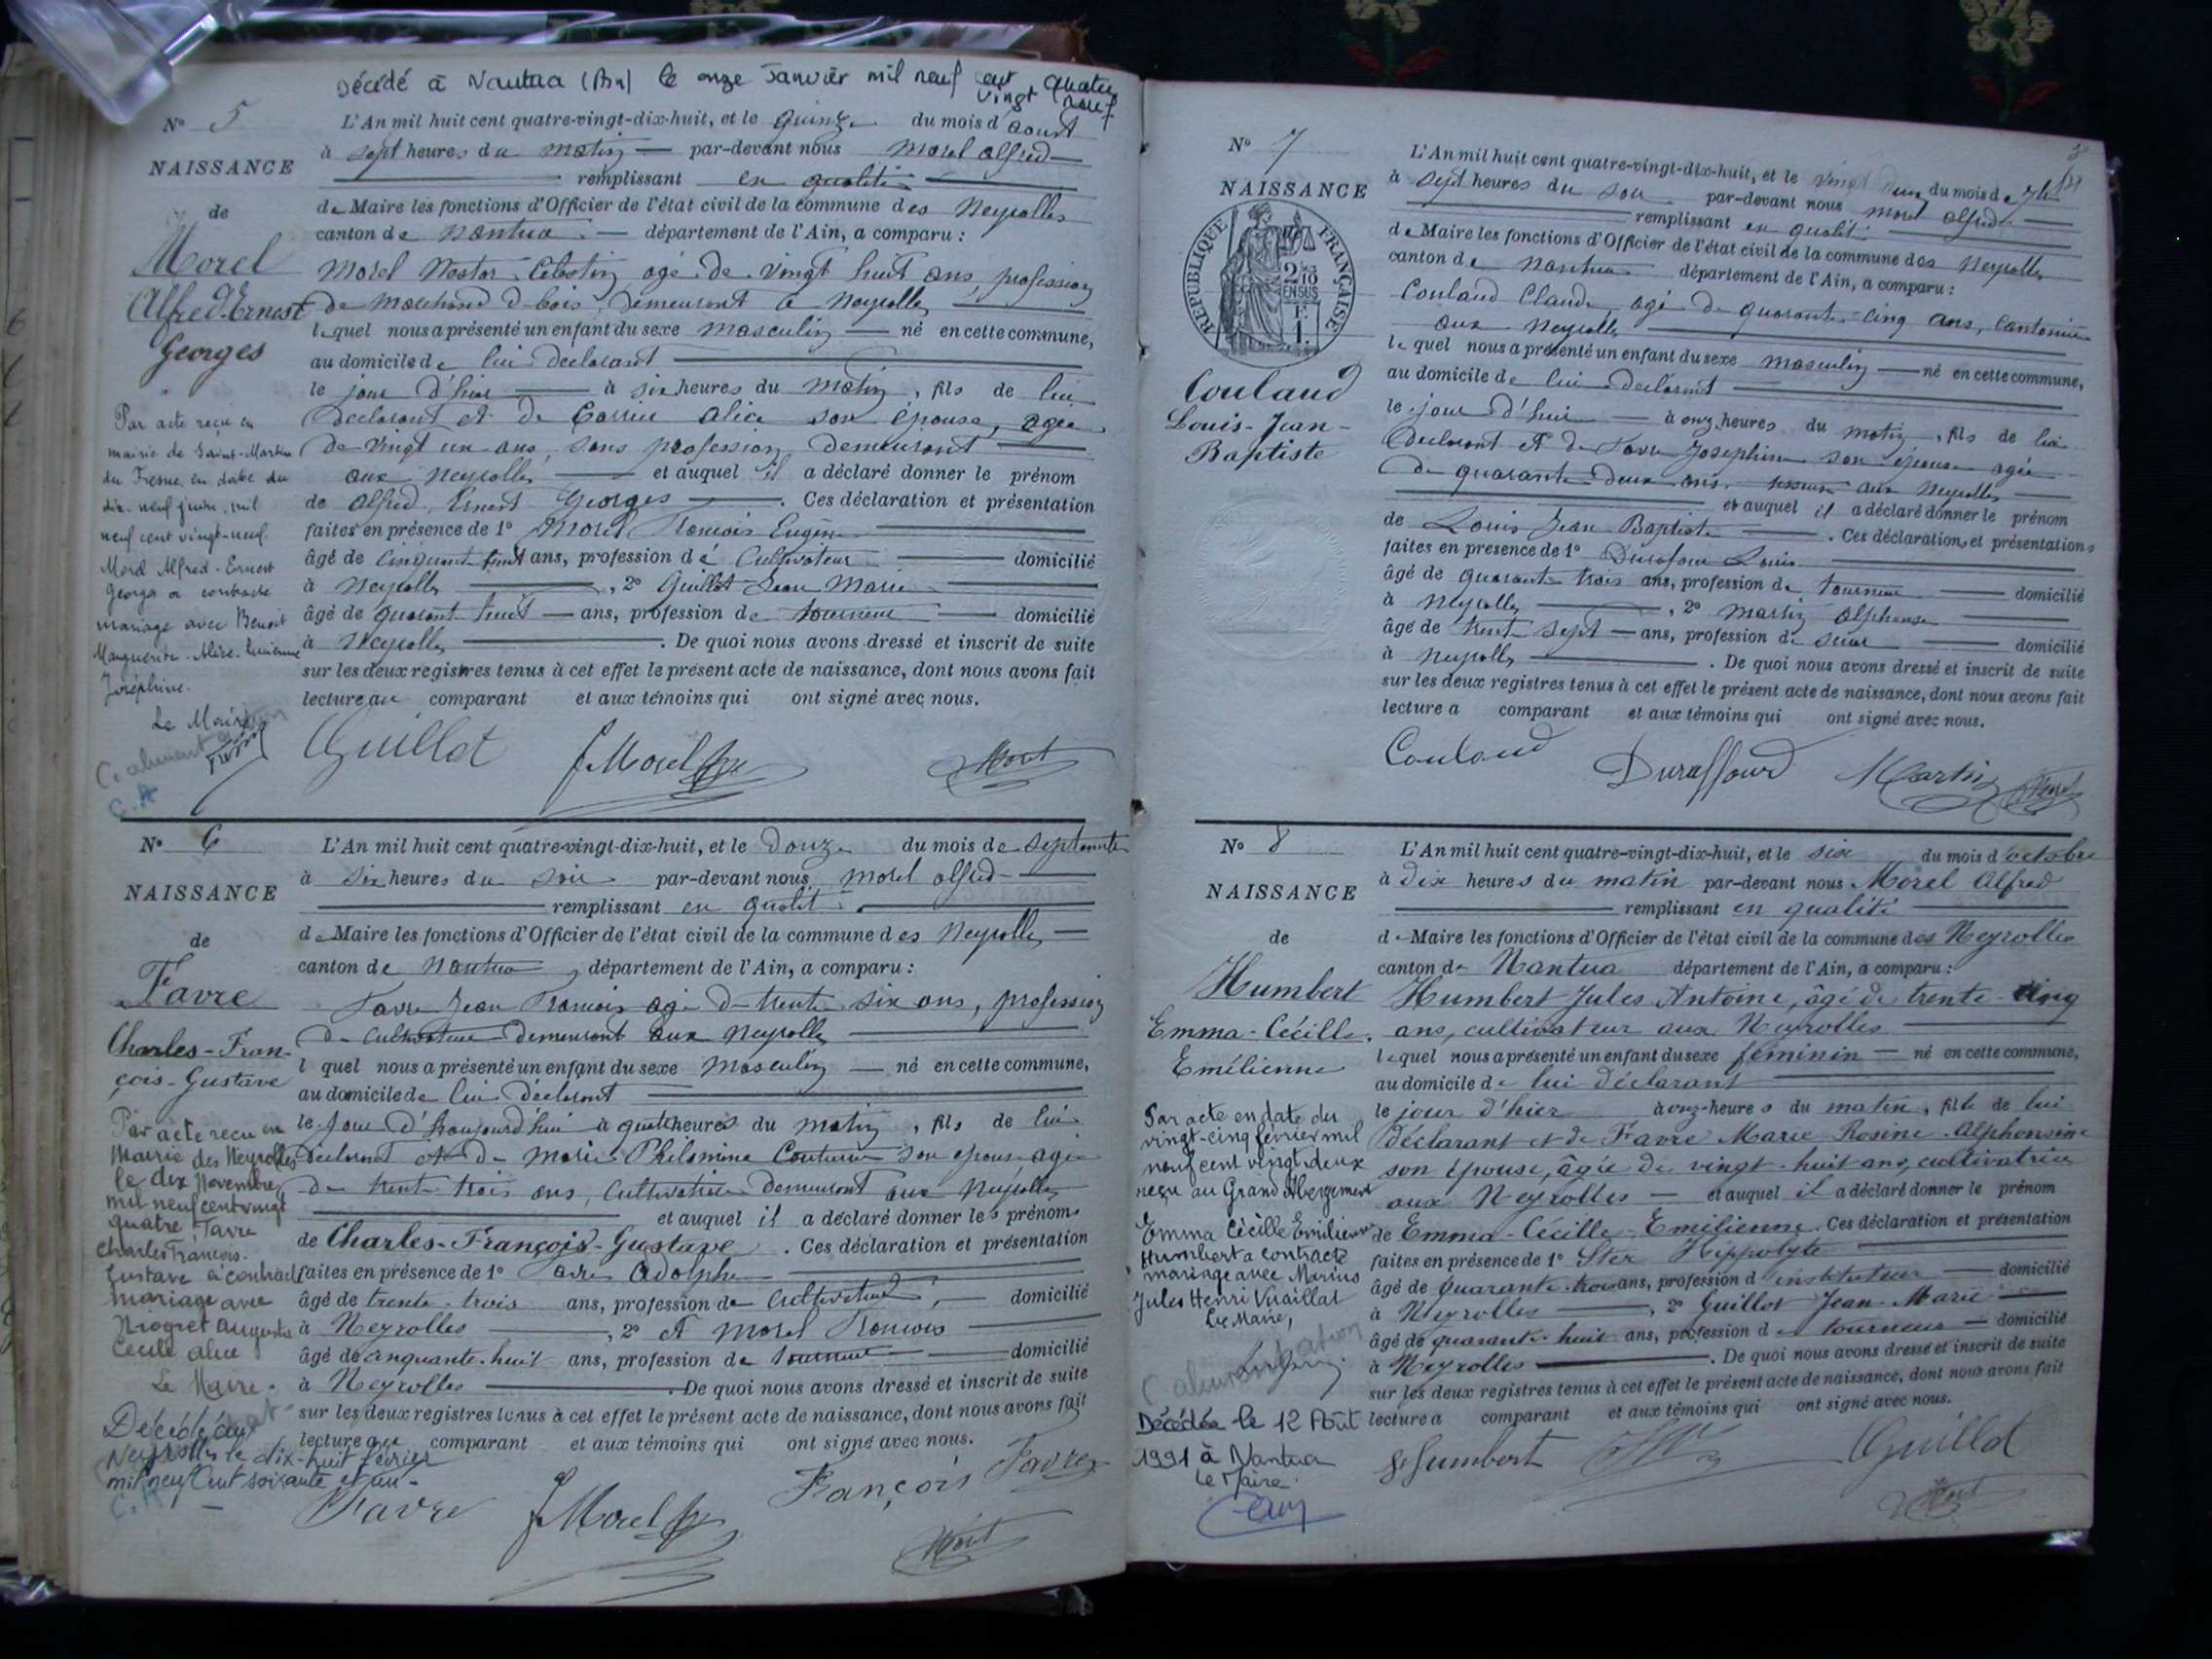 Décédé à Nantua (Ain) le onze Janvier mil neuf cent quatre
vingt neuf
N° 5
NAISSANCE
de
Morel
Alfred-Ernest
Georges
Par acte reçu en
mairie de Saint-Martin
du Fresne, en date du
dix-neuf juin mil
neuf cent vingt-neuf.
Morel Alfred-Ernest
Georges a contracté
mariage avec Benoit
Marguerite-Alice-Lucienne
Joséphine.
Le Maire
L'An mil huit cent quatre-vingt-dix-huit, et le quinze du mois d'aout
à sept heures du matin — par-devant nous Morel Alfred
remplissant en qualité
de Maire les fonctions d'Officier de l'état civil de la commune des Neyrolles
canton de Nantua — département de l'Ain, a comparu :
Morel Nestor Célestin agé de vingt huit ans, profession
de marchand de bois, demeurant à Neyrolles
lequel nous a présenté un enfant du sexe masculin — né en cette commune,
au domicile de lui déclarant
le jour d'hier — à six heures du matin, fils de lui
déclarant et de Carrier Alice son épouse, agée
de vingt un ans, sans profession demeurant
aux Neyrolles — et auquel il a déclaré donner le prénom
de Alfred, Ernest Georges — . Ces déclaration et présentation
faites en présence de 1° Morel François Eugène
âgé de cinquante huit ans, profession de Cultivateur — domicilié
à Neyrolles —, 2° Guillot Jean Marie
âgé de quarante huit — ans, profession de tourneur — domicilié
à Neyrolles — . De quoi nous avons dressé et inscrit de suite
sur les deux registres tenus à cet effet le présent acte de naissance, dont nous avons fait
lecture au comparant et aux témoins qui ont signé avec nous.
Guillot JMorel Morel
N° 6
NAISSANCE
de
Favre
Charles-Fran-
çois-Gustave
Par acte reçu en
Mairie des Neyrolles
le dix Novembre
mil neuf cent vingt
quatre, Favre
Charles François
Gustave a contracté
mariage avec
Niogret Augusta
Cécile Alice
Le Maire.
Décédé aux
Neyrolles le dix-huit février
mil neuf cent soixante et un.
L'An mil huit cent quatre-vingt-dix-huit, et le douze du mois de septembre
à six heures du soir par-devant nous Morel Alfred
remplissant en qualité
de Maire les fonctions d'Officier de l'état civil de la commune des Neyrolles —
canton de Nantua, département de l'Ain, a comparu :
Favre Jean François agé de trente six ans, profession
de cultivateur demeurant aux Neyrolles
l quel nous a présenté un enfant du sexe Masculin — né en cette commune,
au domicile de lui déclarant
le jour d'aujourd'hui à quatre heures du matin, fils de lui
déclarant et de Marie Philomine Couturier son épouse agée
de trente trois ans, cultivatrice demeurant aux Neyrolles
et auquel il a déclaré donner les prénoms
de Charles-François-Gustave . Ces déclaration et présentation
faites en présence de 1° Favre Adolphe
âgé de trente-trois ans, profession de cultivateur, — domicilié
à Neyrolles —, 2° et Morel François
âgé de cinquante-huit ans, profession de tourneur — domicilié
à Neyrolles — . De quoi nous avons dressé et inscrit de suite
sur les deux registres tenus à cet effet le présent acte de naissance, dont nous avons fait
lecture au comparant et aux témoins qui ont signé avec nous.
Favre JMorel François Favre
Morel
N° 7
NAISSANCE
REPUBLIQUE FRANÇAISE
Couland
Louis-Jean-
Baptiste
L'An mil huit cent quatre-vingt-dix-huit, et le vingt deux du mois de 7bre
à sept heures du soir par-devant nous Morel Alfred
remplissant en qualité
de Maire les fonctions d'Officier de l'état civil de la commune des Neyrolles
canton de Nantua département de l'Ain, a comparu :
Couland Claude, agé de quarante-cinq ans, cantonnier
aux Neyrolles
le quel nous a présenté un enfant du sexe masculin — né en cette commune,
au domicile de lui déclarant
le jour d'hui — à onze heures du matin, fils de lui
déclarant et de Favre Joséphine son épouse agée
de quarante deux ans, aux Neyrolles
et auquel il a déclaré donner le prénom
de Louis Jean Baptiste — . Ces déclarations et présentations
faites en présence de 1° Duraffour Louis
âgé de quarante-trois ans, profession de tourneur — domicilié
à Neyrolles —, 2° Martin Alphonse
âgé de trente sept — ans, profession de — domicilié
à Neyrolles — . De quoi nous avons dressé et inscrit de suite
sur les deux registres tenus à cet effet le présent acte de naissance, dont nous avons fait
lecture a comparant et aux témoins qui ont signé avec nous.
Couland Duraffourd Martin Morel
N° 8
NAISSANCE
de
Humbert
Emma-Cécille.
Emélienne
Par acte en date du
vingt-cinq février mil
neuf cent vingt deux
reçu au Grand Abergement
Emma Cécille Emilienne
Humbert a contracté
mariage avec Marius
Jules Henri Vuaillat
Le Maire,
Décédée le 12 Août
1991 à Nantua
Le Maire.
L'An mil huit cent quatre-vingt-dix-huit, et le six du mois d'octobre
à dix heures du matin par-devant nous Morel Alfred
remplissant en qualité
de Maire les fonctions d'Officier de l'état civil de la commune des Neyrolles
canton de Nantua département de l'Ain, a comparu :
Humbert Jules Antoine, âgé de trente-cinq
ans, cultivateur aux Neyrolles
lequel nous a présenté un enfant du sexe féminin — né en cette commune,
au domicile de lui déclarant
le jour d'hier à onze heures du matin, fille de lui
déclarant et de Favre Marie Rosine Alphonsine
son épouse, âgée de vingt-huit ans, cultivatrice
aux Neyrolles — et auquel il a déclaré donner le prénom
de Emma-Cécille-Emélienne. Ces déclaration et présentation
faites en présence de 1° Ster Hippolyte
âgé de quarante-trois ans, profession d'instituteur — domicilié
à Neyrolles —, 2° Guillot Jean-Marie
âgé de quarante-huit ans, profession de tourneur — domicilié
à Neyrolles — . De quoi nous avons dressé et inscrit de suite
sur les deux registres tenus à cet effet le présent acte de naissance, dont nous avons fait
lecture a comparant et aux témoins qui ont signé avec nous.
Humbert Guillot
Morel